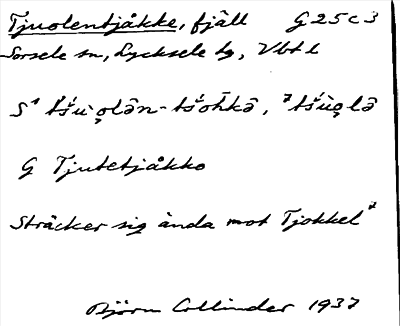 Tjuolentjåkke, fjäll G25c3
Sorsele sn, Lycksele lg, Vbtl
S¹ tśu̇o̜lān-tśoħkē, ²tśu̇o̜lā
G Tjutetjåkko
Sträcker sig ända mot Tjokkel²
Björn Collinder 1937